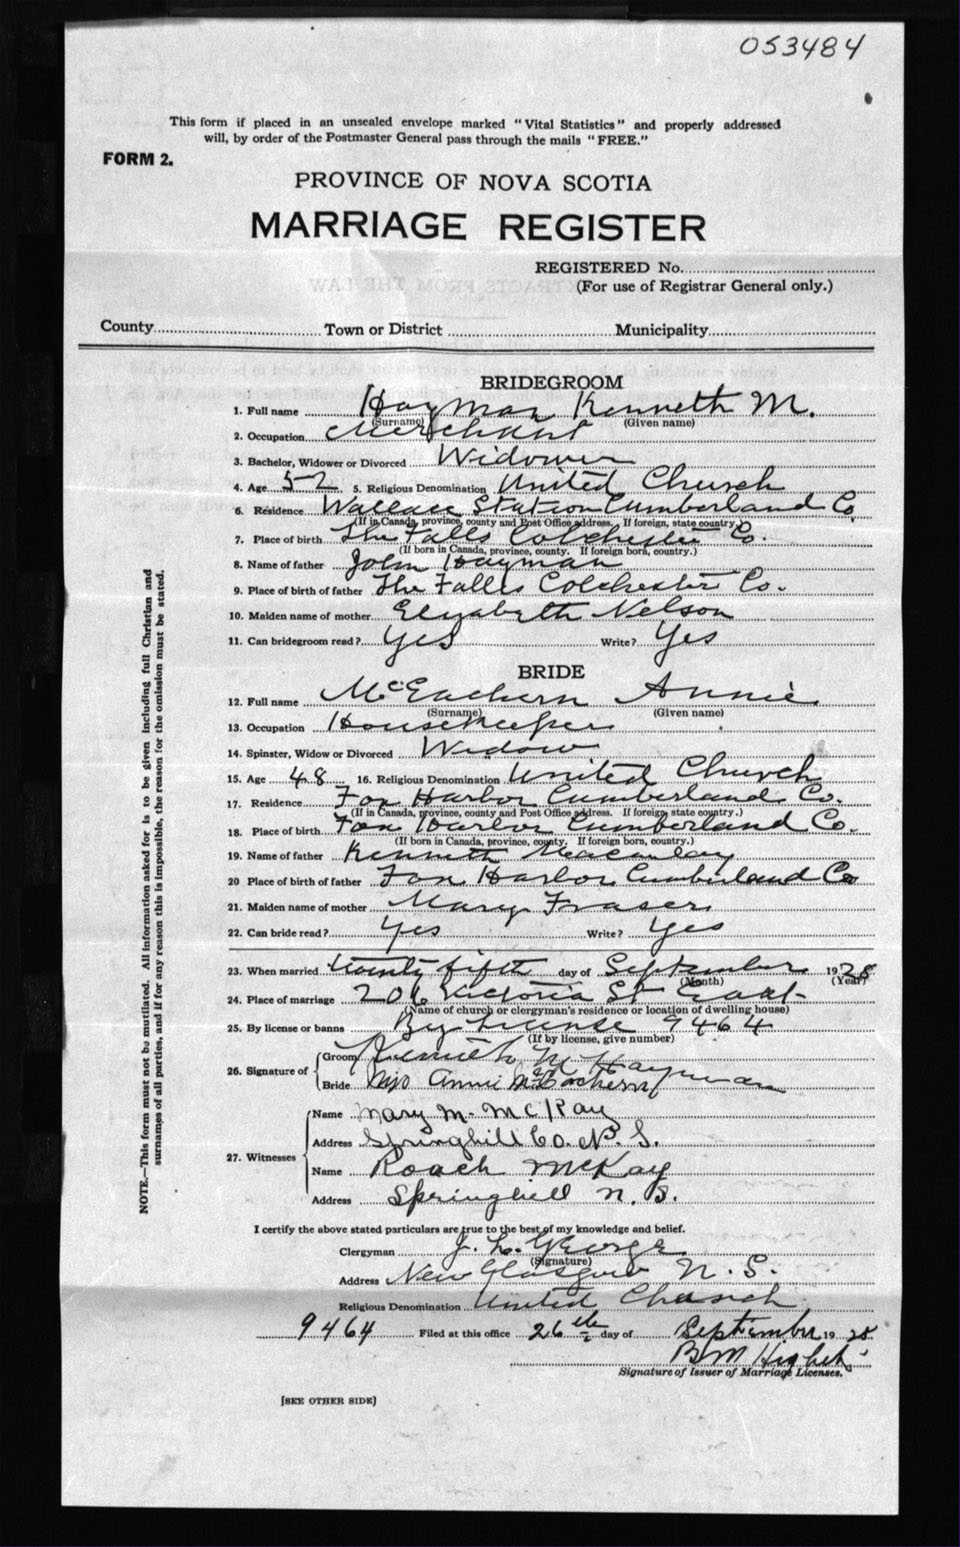 053484
This form if placed in an unsealed envelope marked "Vital Statistics" and properly addressed
will, by order of the Postmaster General pass through the mails "FREE."
FORM 2.
PROVINCE OF NOVA SCOTIA
MARRIAGE REGISTER
REGISTERED No.
(For use of Registrar General only.)
County Town or District Municipality
BRIDEGROOM
1. Full name Hayman Kenneth M.
(Surname) (Given name)
2. Occupation Merchant
3. Bachelor, Widower or Divorced Widower
4. Age 52 5. Religious Denomination United Church
6. Residence Wallace Station Cumberland Co
(If in Canada, province, county and Post Office address. If foreign, state country.)
7. Place of birth The Falls Colchester Co.
(If born in Canada, province, county. If foreign born, country.)
8. Name of father John Hayman
9. Place of birth of father The Falls Colchester Co.
10. Maiden name of mother Elizabeth Nelson
11. Can bridegroom read? Yes Write? Yes
BRIDE
12. Full name McEachern Annie
(Surname) (Given name)
13. Occupation Housekeeper
14. Spinster, Widow or Divorced Widow
15. Age 48 16. Religious Denomination United Church
17. Residence Fox Harbor Cumberland Co.
(If in Canada, province, county and Post Office address. If foreign, state country.)
18. Place of birth Fox Harbor Cumberland Co.
(If born in Canada, province, county. If foreign born, country.)
19. Name of father Kenneth Macaulay
20 Place of birth of father Fox Harbor Cumberland Co
21. Maiden name of mother Mary Fraser
22. Can bride read? Yes Write? Yes
23. When married twenty fifth day of September 1928
(Month) (Year)
24. Place of marriage 206 Victoria St East
(Name of church or clergyman's residence or location of dwelling house)
25. By license or banns By License 9464
(If by license, give number)
26. Signature of Groom Kenneth M Hayman
Bride Annie McEachern
27. Witnesses
Name Mary M. McKay
Address Springhill Co. N. S.
Name Roach McKay
Address Springhill N. S.
I certify the above stated particulars are true to the best of my knowledge and belief.
Clergyman J. L. George
(Signature)
Address New Glasgow N. S.
Religious Denomination United Church
9464 Filed at this office 26th day of September 1928
Signature of Issuer of Marriage Licenses.
[SEE OTHER SIDE]
NOTE.—This form must not be mutilated. All information asked for is to be given including full Christian and
surnames of all parties, and if for any reason this is impossible, the reason for the omission must be stated.